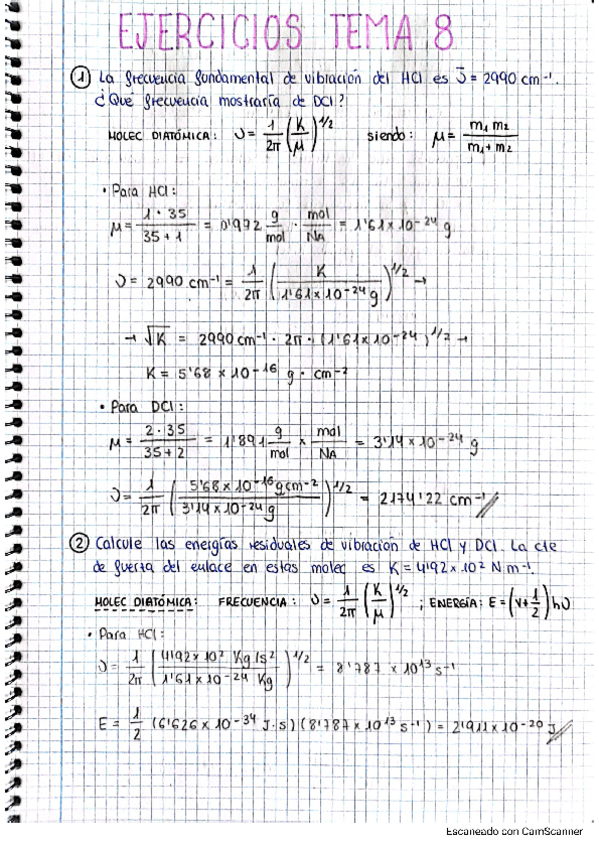 EJERCICIOS TEMA 8
① La frecuencia fundamental de vibración del HCl es ῡ = 2990 cm⁻¹.
¿Qué frecuencia mostraría de DCl?
MOLEC DIATÓMICA: υ = 1/2π (K/μ)^1/2 siendo: μ = m₁ m₂ / m₁ + m₂
• Para HCl:
μ = 1 · 35 / 35 + 1 = 0'972 g/mol · mol/NA = 1'61 × 10⁻²⁴ g
υ = 2990 cm⁻¹ = 1/2π (K / 1'61 × 10⁻²⁴ g)^1/2 →
→ √K = 2990 cm⁻¹ · 2π · (1'61 × 10⁻²⁴)^1/2 →
K = 5'68 × 10⁻¹⁶ g · cm⁻²
• Para DCl:
μ = 2 · 35 / 35 + 2 = 1'891 g/mol × mol/NA = 3'14 × 10⁻²⁴ g
υ = 1/2π (5'68 × 10⁻¹⁶ g cm⁻² / 3'14 × 10⁻²⁴ g)^1/2 = 2174'22 cm⁻¹
② Calcule las energías residuales de vibración de HCl y DCl. La cte
de fuerza del enlace en estas molec es K = 4'92 × 10² N m⁻¹.
MOLEC DIATÓMICA: FRECUENCIA: υ = 1/2π (K/μ)^1/2 ; ENERGÍA: E = (v + 1/2) hυ
• Para HCl:
υ = 1/2π (4'92 × 10² Kg/s² / 1'61 × 10⁻²⁴ Kg)^1/2 = 8'787 × 10¹³ s⁻¹
E = 1/2 (6'626 × 10⁻³⁴ J·s) (8'787 × 10¹³ s⁻¹) = 2'911 × 10⁻²⁰ J
Escaneado con CamScanner